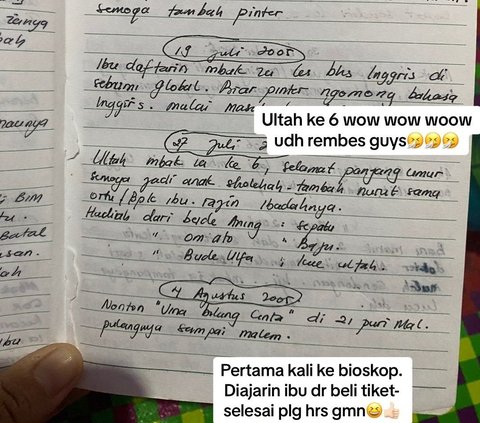 semoga tambah pinter
19 Juli 2005
Ibu daftarin mbak za les bhs Inggris di
sebumi global. Biar pinter ngomong bahasa
Inggris. mulai
Ultah ke 6 wow wow woow
udh rembes guys🤧🤧🤧
27 Juli
Ultah mbak za ke 6, selamat panjang umur
semoga jadi anak sholehah. tambah nurut sama
ortu / Bpk ibu. rajin ibadahnya.
Hadiah dari bude Aning : sepatu
" om ato " Baju.
" Bude Ulfa : kue ultah.
4 Agustus 2005
Nonton "Vina bilang Cinta" di 21 puri Mal.
pulangnya sampai malem.
Pertama kali ke bioskop.
Diajarin ibu dr beli tiket-
selesai plg hrs gmn😆👍🏻
zainya
bah
naunya
BIM
tu.
Batal
usan.
lah
ibu